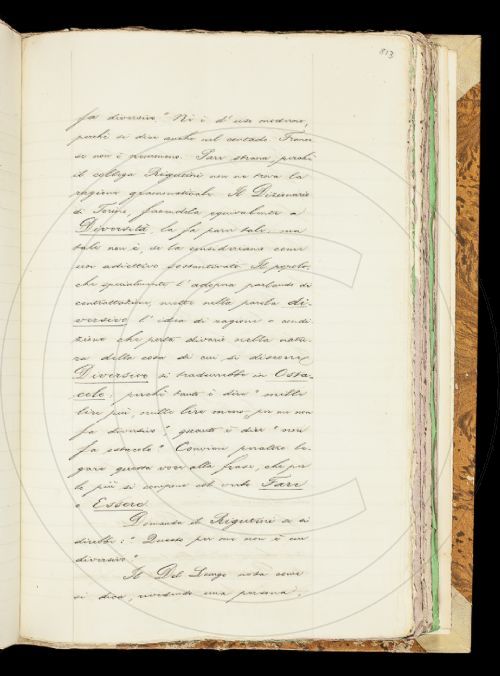 813
fa diverso." Nè è d' uso moderno,
perchè si dice anche nel contado. France
se non è nemmeno. Pare strano, perchè
il collega Rigutini non ne trova la
ragione grammaticale. Il Dizionario
di Torino, facendola equivalente a
Diversità la fa parer tale, ma
tale non è, se la consideriamo come
un adiettivo sostantivato. Il popolo,
che specialmente l' adopra parlando di
contrattazione, mette nella parola di-
versivo l' idea di ragioni o condi-
zione che porta divario nella natu-
ra della cosa di cui si discorre.
Diversivo si tradurrebbe in Osta-
colo, perchè tanto è dire "mille
lire più, mille lire meno per me non
fa diversivo," quanto è dire "non
fa ostacolo." Conviene peraltro le-
gare questa voce alla frase, che per
lo più si compone col verbo Fare
o Essere.
Domanda il Rigutini se si
direbbe: "Questo per me non è un
diversivo."
Il Del Lungo nota come
si dica, vivendo una persona,